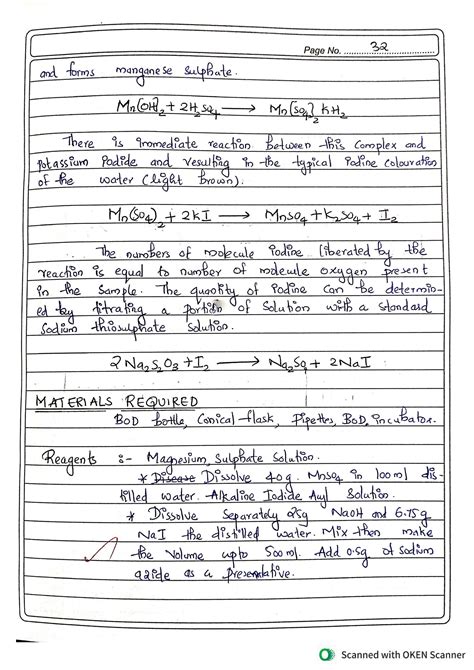 Page No. 32
and forms manganese sulphate.
Mn(OH)2 + 2H2SO4 → Mn(SO4)2 KH2
There is immediate reaction between this complex and
potassium Iodide and resulting in the typical iodine colouration
of the water (light brown).
Mn(SO4)2 + 2KI → MnSO4 + K2SO4 + I2
The numbers of molecule iodine liberated by the
reaction is equal to number of molecule oxygen present
in the sample. The quantity of iodine can be determin-
ed by titrating a portion of solution with a standard
sodium thiosulphate solution.
2Na2S2O3 + I2 → Na2SO4 + 2NaI
MATERIALS REQUIRED
BOD bottle, Conical flask, Pipettes, BOD, incubator.
Reagents :- Magnesium, Sulphate Solution.
* Disease Dissolve 40g. MnSO4 in 100ml dis-
tilled water. Alkaline Iodide Solution.
* Dissolve Separately NaOH and 6.75g
NaI the distilled water. Mix then make
the volume upto 500ml. Add 0.5g of Sodium
azide as a
Scanned with OKEN Scanner